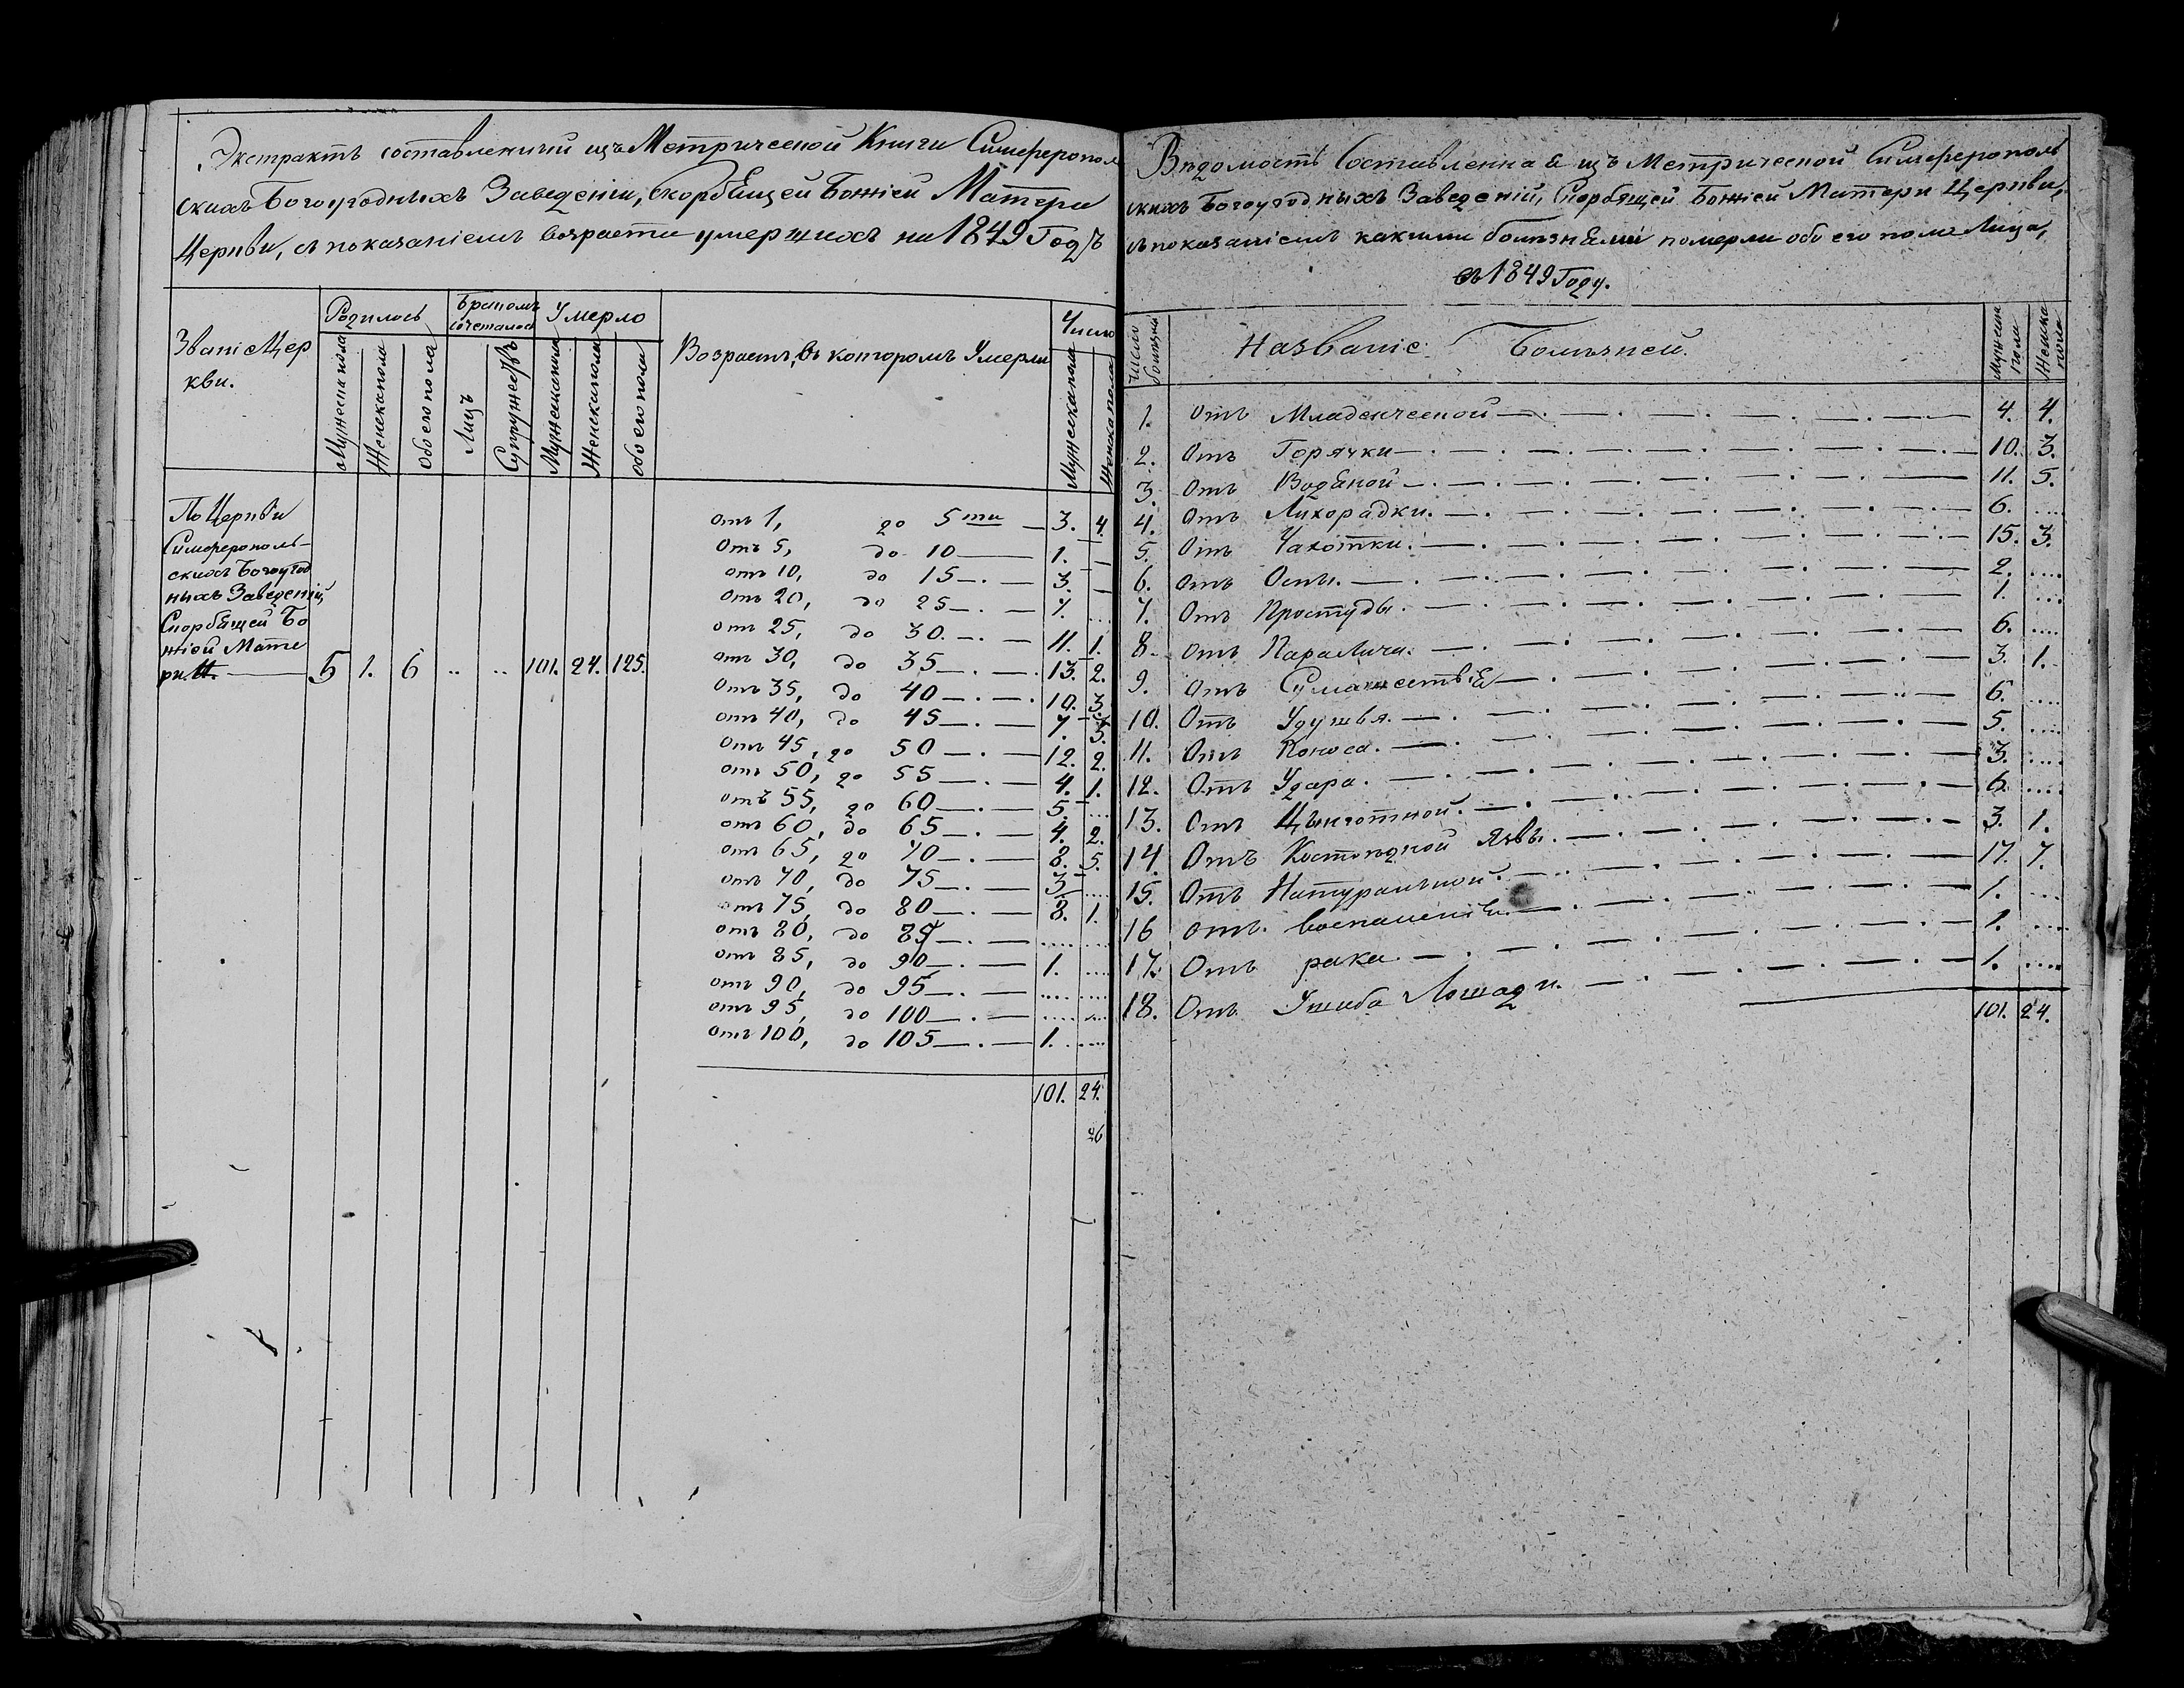 Экстрактъ составленный изъ Метрической Книги Симферополь
скихъ Богоугодныхъ Заведеніи, Скорбящей Божіей Матери
Церкви, съ показаніемъ возраста умерщихъ на 1849 Годъ
Званіе Цер
кви.
Родилось
Бракомъ
сочеталось
Умерло
Возрастъ, въ которомъ Умерли
Число
Мужеска пола
Женска пола
Обоего пола
Лицъ
Супружествъ
Мужеска пола
Женска пола
Обоего пола
Мужеска пола
Женска пола
По Церкви
Симферополь-
скихъ Богоугод
ныхъ Заведеній
Скорбящей Бо
жіей Мате
ри. 5 1. 6 .. .. 101. 24. 125.
отъ 1, до 5ти — 3. 4.
Отъ 5, до 10 — 1. —
отъ 10, до 15 — . — 3. —
отъ 20, до 25 — . — 7. ...
отъ 25, до 30. — . — 11. 1.
отъ 30, до 35 — . — 13. 2.
Отъ 35, до 40 — . — 10. 3.
отъ 40, до 45 — . — 7. 3.
отъ 45, до 50 — . — 12. 2.
отъ 50, до 55 — . — 4. 1.
отъ 55, до 60 — . — 5. ...
отъ 60, до 65 — . — 4. 2.
отъ 65, до 70 — . — 8. 5.
отъ 70, до 75 — . — 3. ....
отъ 75, до 80 — . — 8. 1.
отъ 80, до 85 — . — .... ....
отъ 85, до 90 — . — 1. ....
отъ 90, до 95 — . — .... ....
отъ 95, до 100 — . — .... ....
отъ 100, до 105 — . — 1. ....
101. 24.
26
Вѣдомость Составленная изъ Метрической Симферополь
скихъ Богоугодныхъ Заведеній, Скорбящей Божіей Матери Церкви,
съ показаніемъ какими болѣзнями померли обоего пола Лица,
въ 1849 Году.
Число
болѣзнь
Названіе Болѣзней.
Мужеска
пола
Женска
пола
1. отъ Младенческой — . — 4. 4.
2. Отъ Горячки — . — 10. 3.
3. Отъ Водяной — . — 11. 5.
4. Отъ Лихорадки. — . — 6. ....
5. Отъ Чахотки. — . — 15. 3.
6. отъ Оспы. — . — 2. ....
7. Отъ Простуды. — . — 1. ....
8. отъ Паралича. — . — 6. ....
9. отъ Сумашествія — . — 3. 1.
10. Отъ Удушья. — . — 6. ....
11. Отъ Поноса. — . — 5. ....
12. Отъ Удара. — . — 3. ....
13. Отъ Цынготной. — . — 6. ....
14. Отъ Костоѣдной язвы. — . — 3. 1.
15. Отъ Натуральной. — . — 17. 7.
16 отъ. воспаленія. — . — 1. ....
17. Отъ рака. — . — 1. ....
18. Отъ Ушиба Лошади. — . — 1. ....
101. 24.